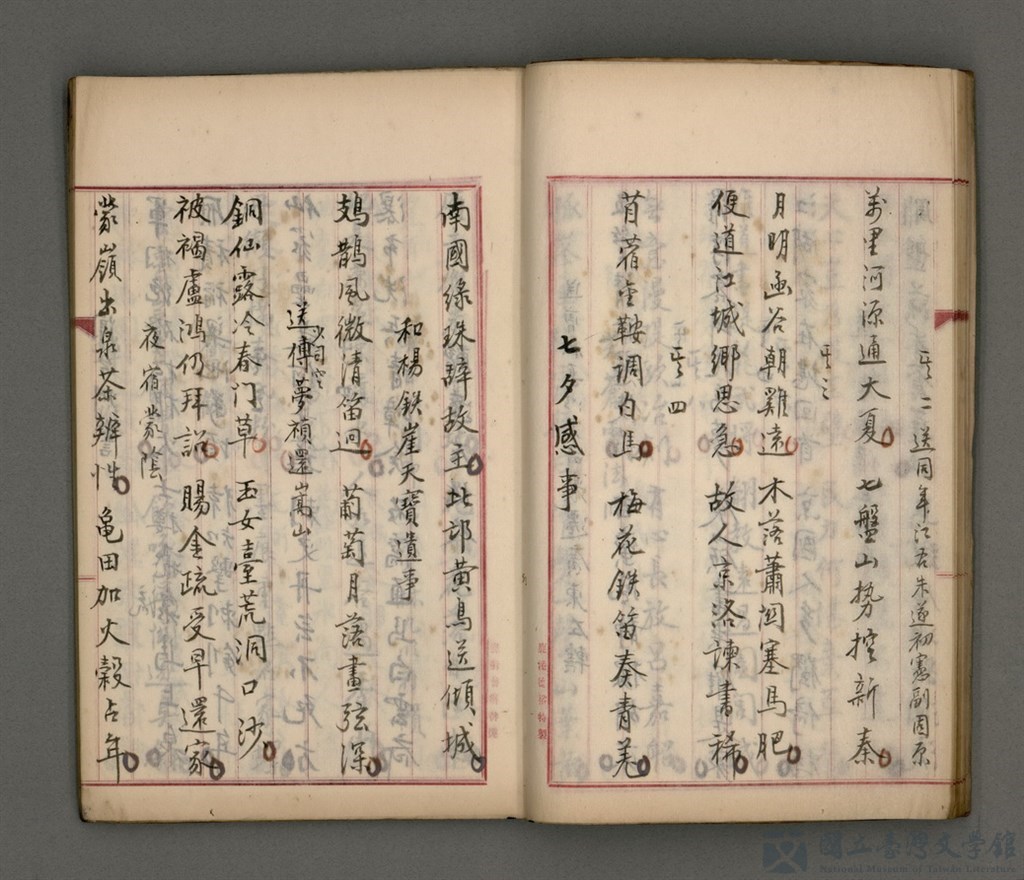 其二 送同年江右朱遂初憲副固原
萬里河源通大夏 七盤山勢控新秦
其三
月明函谷朝雞遠 木落蕭関塞馬肥
便道江城鄉思急 故人京洛諫書稀
其四
苜蓿金鞍調白馬 梅花鉄笛奏青羌
七夕感事
南國綠珠辭故主 北邙黃鳥送傾城
和楊鉄崖天寶遺事
鳷鵲風微清笛迥 葡萄月落畫弦深
送傅夢禎還嵩山
銅仙露冷春门草 玉女臺荒洞口沙
被褐盧鴻仍拜詔 賜金疏受早還家
夜宿蒙陰
蒙嶺出泉茶辨性 亀田加火穀占年
國立臺灣文學館
National Museum of Taiwan Literature